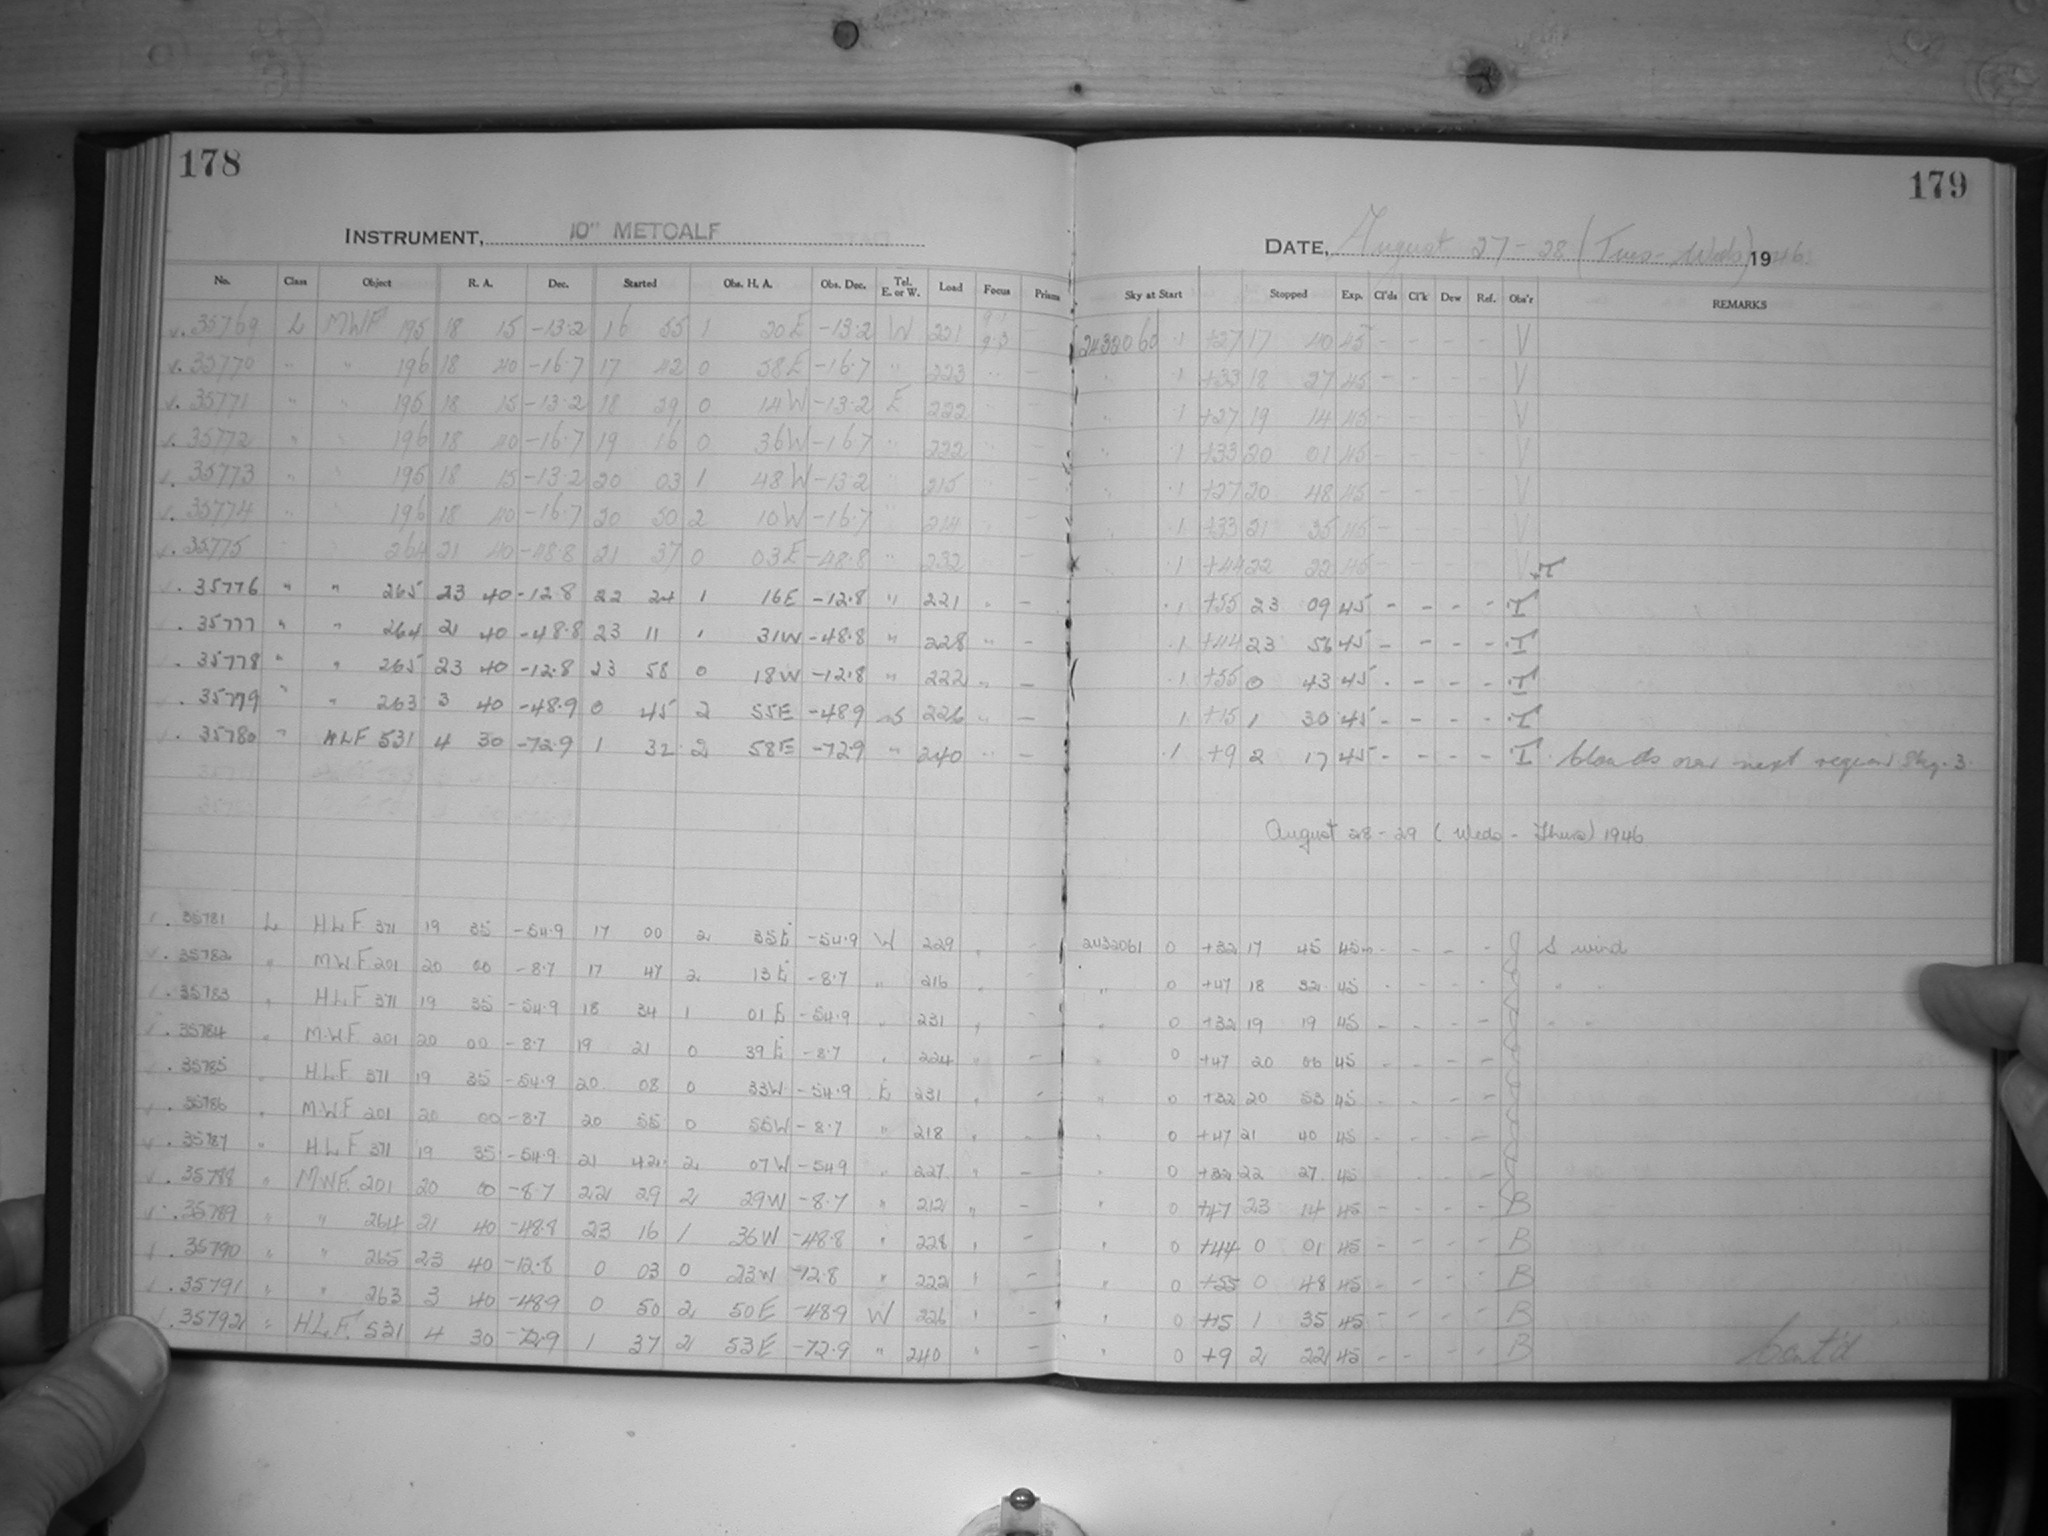 178
INSTRUMENT, 10" METCALF
No. Class Object R. A. Dec. Started Obs. H. A. Obs. Dec. Tel. E. or W. Load Focus Prisms
v. 35769 L MWF 195 18 15 -13.2 16 55 1 20E -13.2 W 221 9.3 -
v. 35770 " " 196 18 40 -16.7 17 42 0 58E -16.7 " 223 " -
v. 35771 " " 195 18 15 -13.2 18 29 0 14W -13.2 E 222 " -
v. 35772 " " 196 18 40 -16.7 19 16 0 36W -16.7 " 222 " -
v. 35773 " " 195 18 15 -13.2 20 03 1 48W -13.2 " 215 " -
v. 35774 " " 196 18 40 -16.7 20 50 2 10W -16.7 " 214 " -
v. 35775 " " 264 21 40 -48.8 21 37 0 03E -48.8 " 232 " -
v. 35776 " " 265 23 40 -12.8 22 24 1 16E -12.8 " 221 " -
. 35777 " " 264 21 40 -48.8 23 11 1 31W -48.8 " 228 " -
. 35778 " " 265 23 40 -12.8 23 58 0 18W -12.8 " 222 " -
. 35779 " " 263 3 40 -48.9 0 45 2 55E -48.9 226 " -
. 35780 " HLF 531 4 30 -72.9 1 32 2 58E -72.9 " 240 " -
. 35781 L HLF 371 19 35 -54.9 17 00 2 35E -54.9 W 229 " -
. 35782 " MWF 201 20 00 -8.7 17 47 2 13E -8.7 " 216 " -
. 35783 " HLF 371 19 35 -54.9 18 34 1 01E -54.9 " 231 " -
. 35784 " MWF 201 20 00 -8.7 19 21 0 39E -8.7 " 224 " -
. 35785 " HLF 371 19 35 -54.9 20 08 0 33W -54.9 E 231 " -
. 35786 " MWF 201 20 00 -8.7 20 55 0 55W -8.7 " 218 " -
v. 35787 " HLF 371 19 35 -54.9 21 42 2 07W -54.9 " 227 " -
v. 35788 " MWF 201 20 00 -8.7 22 29 2 29W -8.7 " 212 " -
v. 35789 " " 264 21 40 -48.8 23 16 1 36W -48.8 " 228 " -
v. 35790 " " 265 23 40 -12.8 0 03 0 23W -12.8 " 222 " -
v. 35791 " " 263 3 40 -48.9 0 50 2 50E -48.9 W 226 " -
v. 35792 " HLF 531 4 30 -72.9 1 37 2 53E -72.9 " 240 " -
179
DATE, August 27-28 (Tues-Weds) 1946
Sky at Start Stopped Exp. Cl'ds Cl'k Dew Ref. Obs'r REMARKS
2432060 .1 +27 17 40 45 - - - - V
" .1 +33 18 27 45 - - - - V
" .1 +27 19 14 45 - - - - V
" .1 +33 20 01 45 - - - - V
" .1 +27 20 48 45 - - - - V
" .1 +33 21 35 45 - - - - V
.1 +44 22 22 45 - - - - V+T
.1 +55 23 09 45 - - - - T
.1 +44 23 56 45 - - - - T
.1 +55 0 43 45 - - - - T
.1 +15 1 30 45 - - - - T
.1 +9 2 17 45 - - - - T clouds over next region Sky .3
August 28-29 (Weds - Thurs) 1946
2432061 0 +32 17 45 45 - - - - J S wind
" 0 +47 18 32 45 - - - - " "
" 0 +32 19 19 45 - - - - " "
" 0 +47 20 06 45 - - - -
" 0 +32 20 53 45 - - - -
" 0 +47 21 40 45 - - - -
" 0 +32 22 27 45 - - - -
" 0 +47 23 14 45 - - - - B
" 0 +44 0 01 45 - - - - B
" 0 +55 0 48 45 - - - - B
" 0 +15 1 35 45 - - - - B
" 0 +9 2 22 45 - - - - B
Cont'd